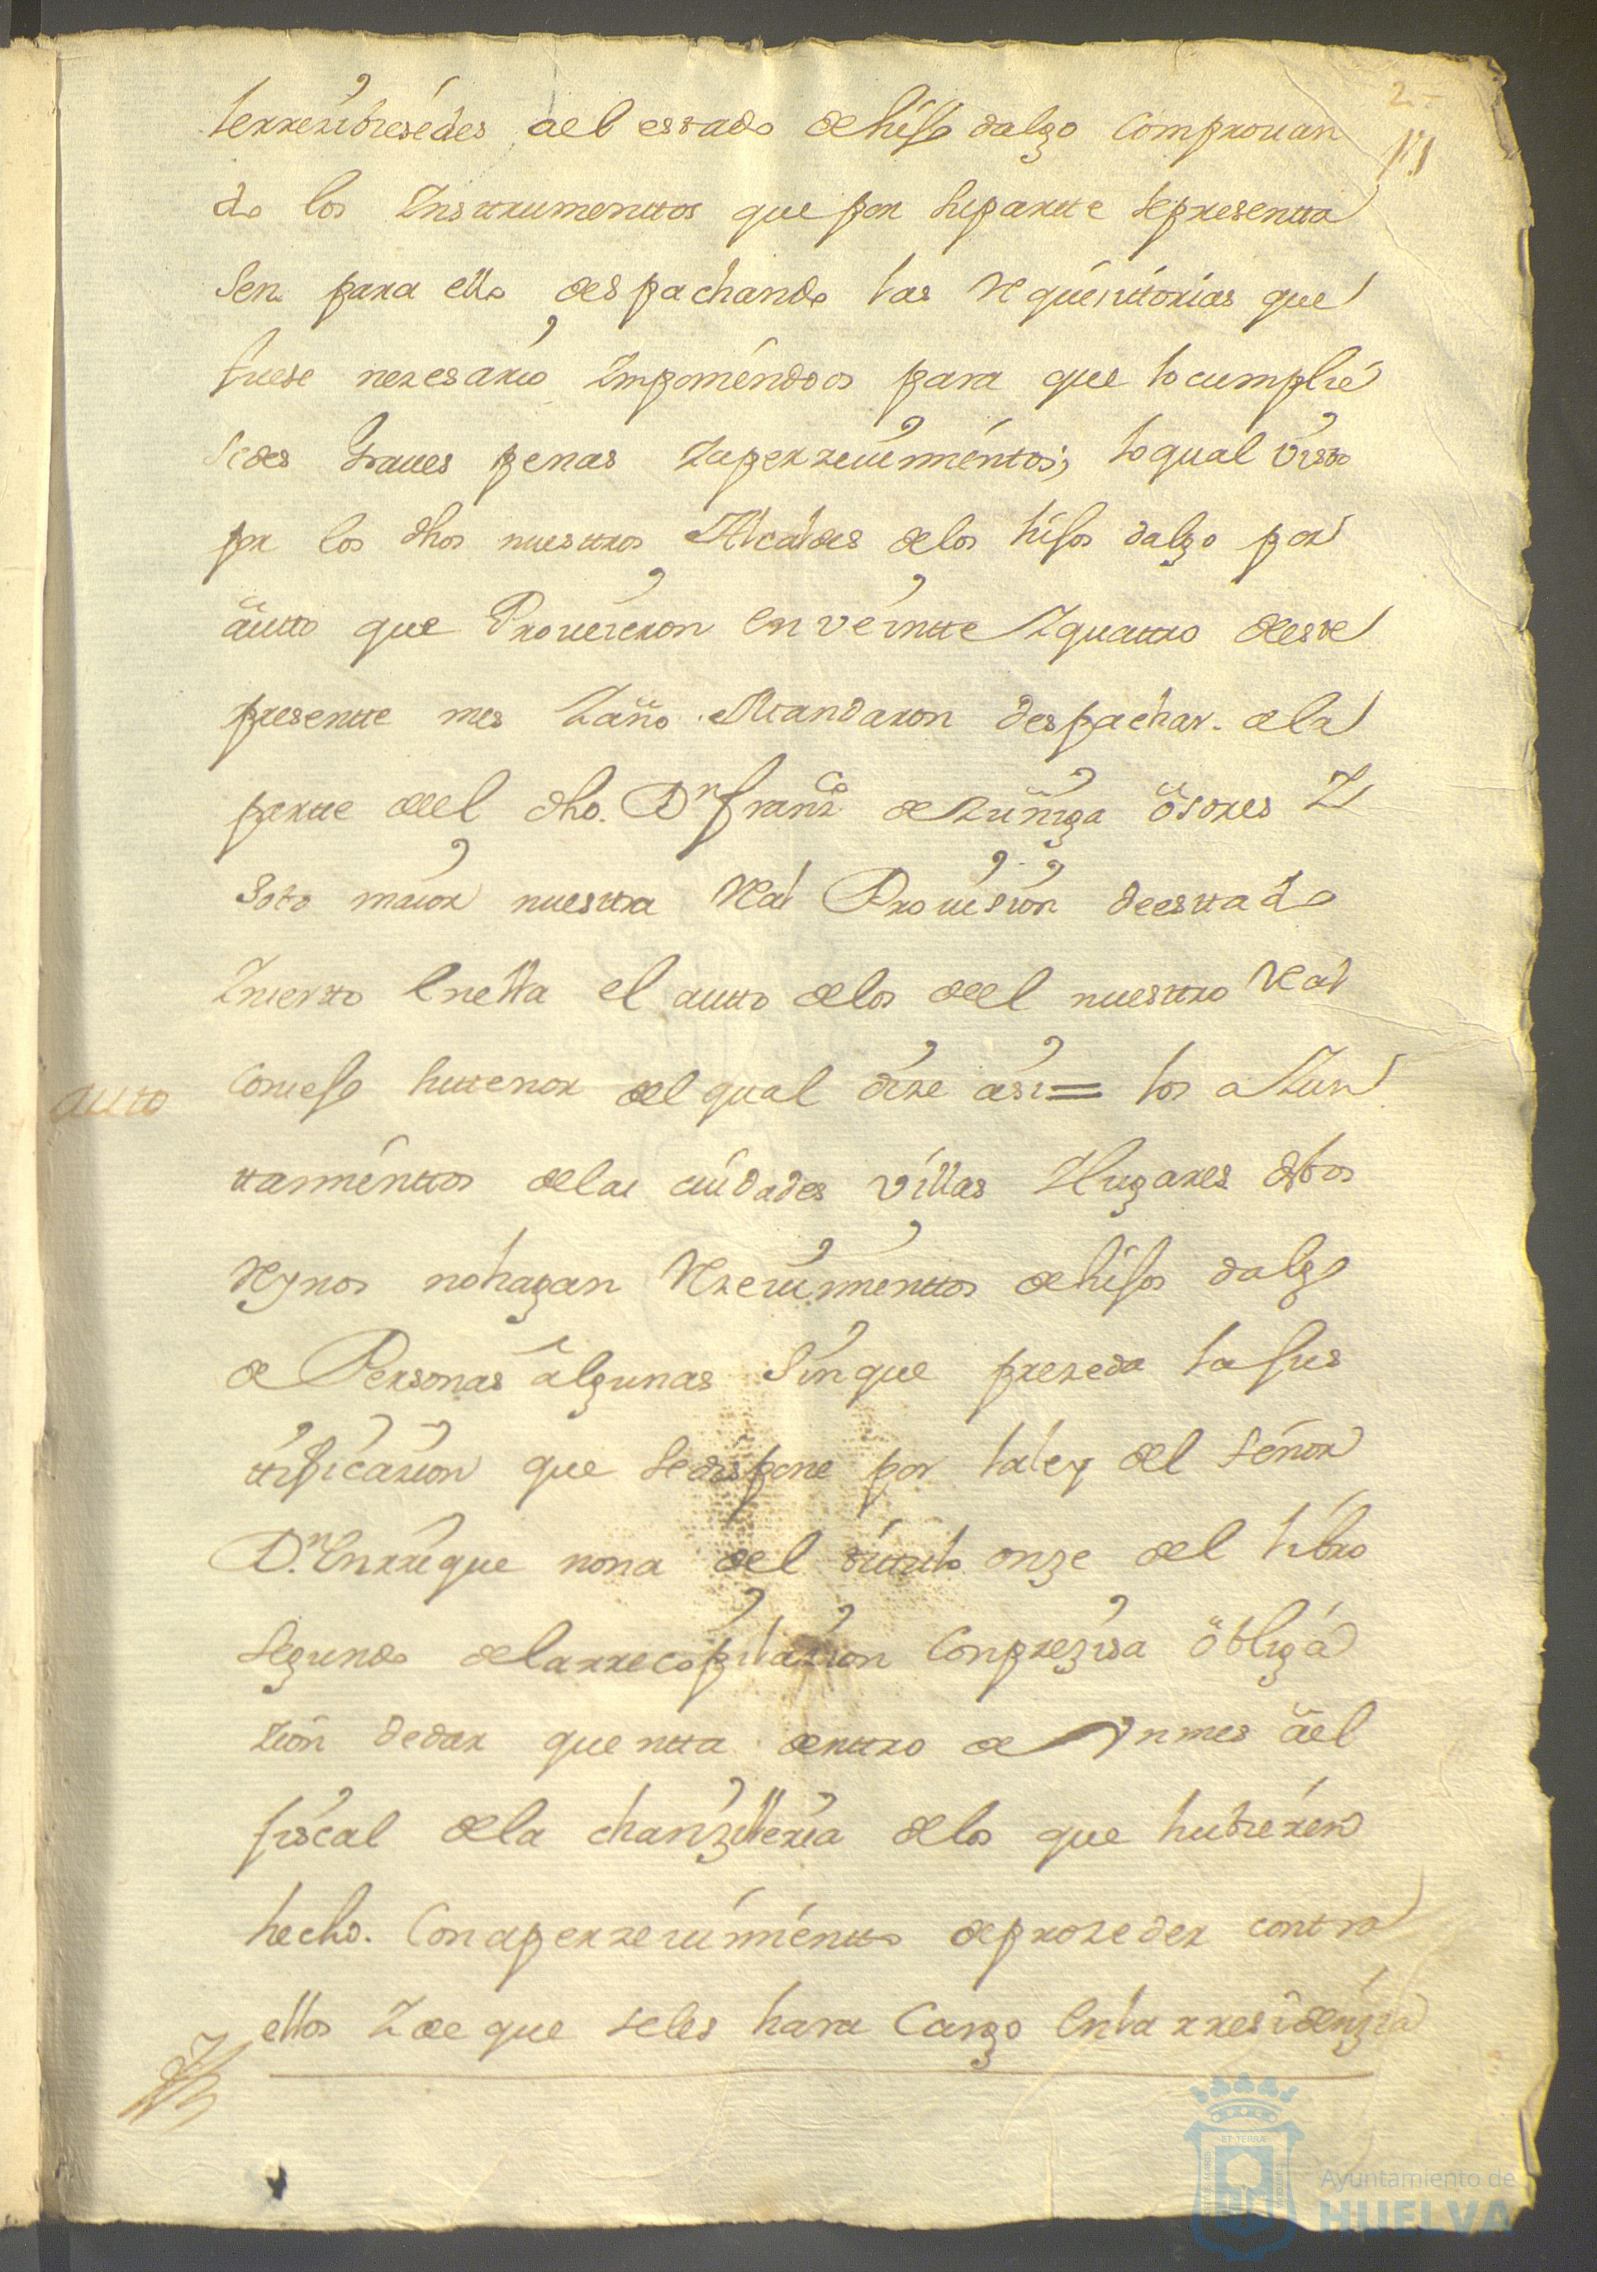 2
le rrezibiesedes al el estado de hijo dalgo Comprouan
do los Ynsttrumenttos que por su partte se presentta
sen para ello despachando las Requisittorias que
fuese nezesario Ymponiendoos para que lo cumplie
sedes Graues penas Y aperzeuimientos, lo qual visto
por los dhos nuesttros Alcaldes de los hijos dalgo por
autto que Proueieron en veintte Y quattro de este
presentte mes Y año Mandaron despachar a la
partte de el dho. Dn. Franco de Zuñiga osores Y
Soto maior nuesttra Real Prouision de esttado
Ynserto En ella el autto de los de el nuesttro Real
auto
Consejo su ttenor del qual dize asi = los aYun
ttamienttos de las ciudades villas Y lugares destos
Reynos no hagan Rezeuimienttos de hijos dalgo
de Personas algunas Sin que prezeda la jus
ttificazion que se dispone por la ley del Señor
Dn. Enrrique nona del titulo onze del libro
Segundo de la rrecopilazion Con preziza obliga
zion de dar quentta denttro de Vn mes a el
fiscal de la chanzilleria de los que hubieren
hecho. Con aperzeuimientto de prozeder contra
ellos Y de que se les hara Cargo En la rresidenzia
Ayuntamiento de
HUELVA